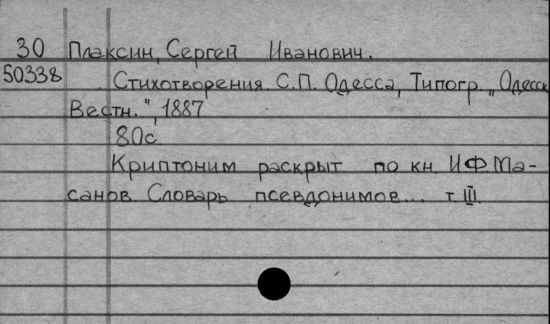 30 Плаксин, Сергей Иванович.
50338 Стихотворения. С.П. Одесса, Типогр. „Одесск
Вестн.", 1887
80с
Криптоним раскрыт по кн. И.Ф.Ма-
санов. Словарь псевдонимов... т. III.